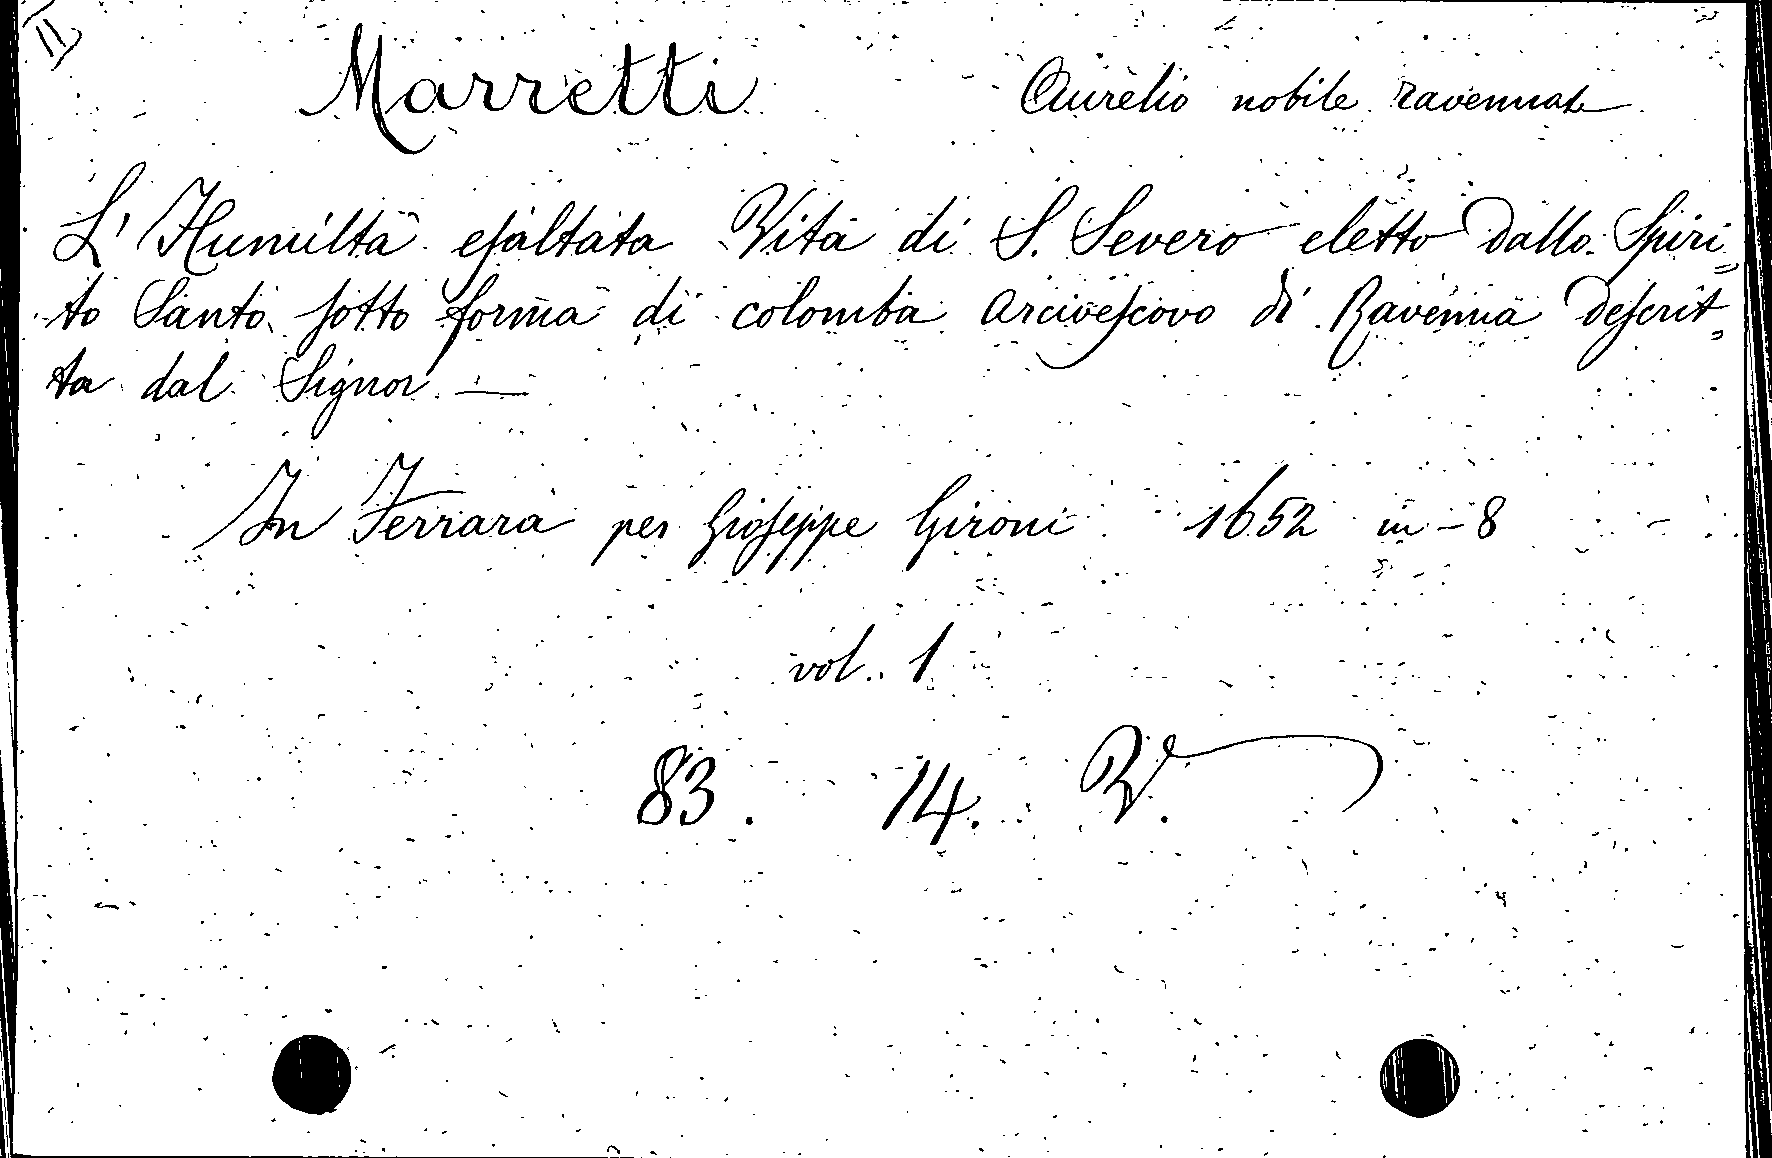 II
Marretti Aurelio nobile ravennate
L' Humiltà eſaltata Vita di S. Severo eletto dallo Spiri=
to Santo ſotto forma di colomba arciveſcovo di Ravenna deſcrit=
ta dal Signor —
In Ferrara per Gioſeppe Gironi 1652 in-8
vol. 1
83. 14. V.